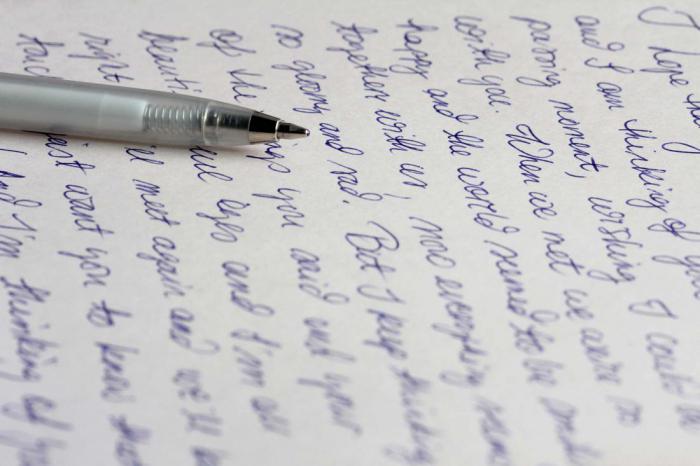 I hope
and I am thinking of you
passing moment, wishing I could be
with you. When we met we were so
happy and the world seemed to be
together with us, now everything
so gloomy and sad. But I keep thinking
of the you said and your
eyes and I'm
right meet again and we'll
just want you to know that
And I'm thinking of you